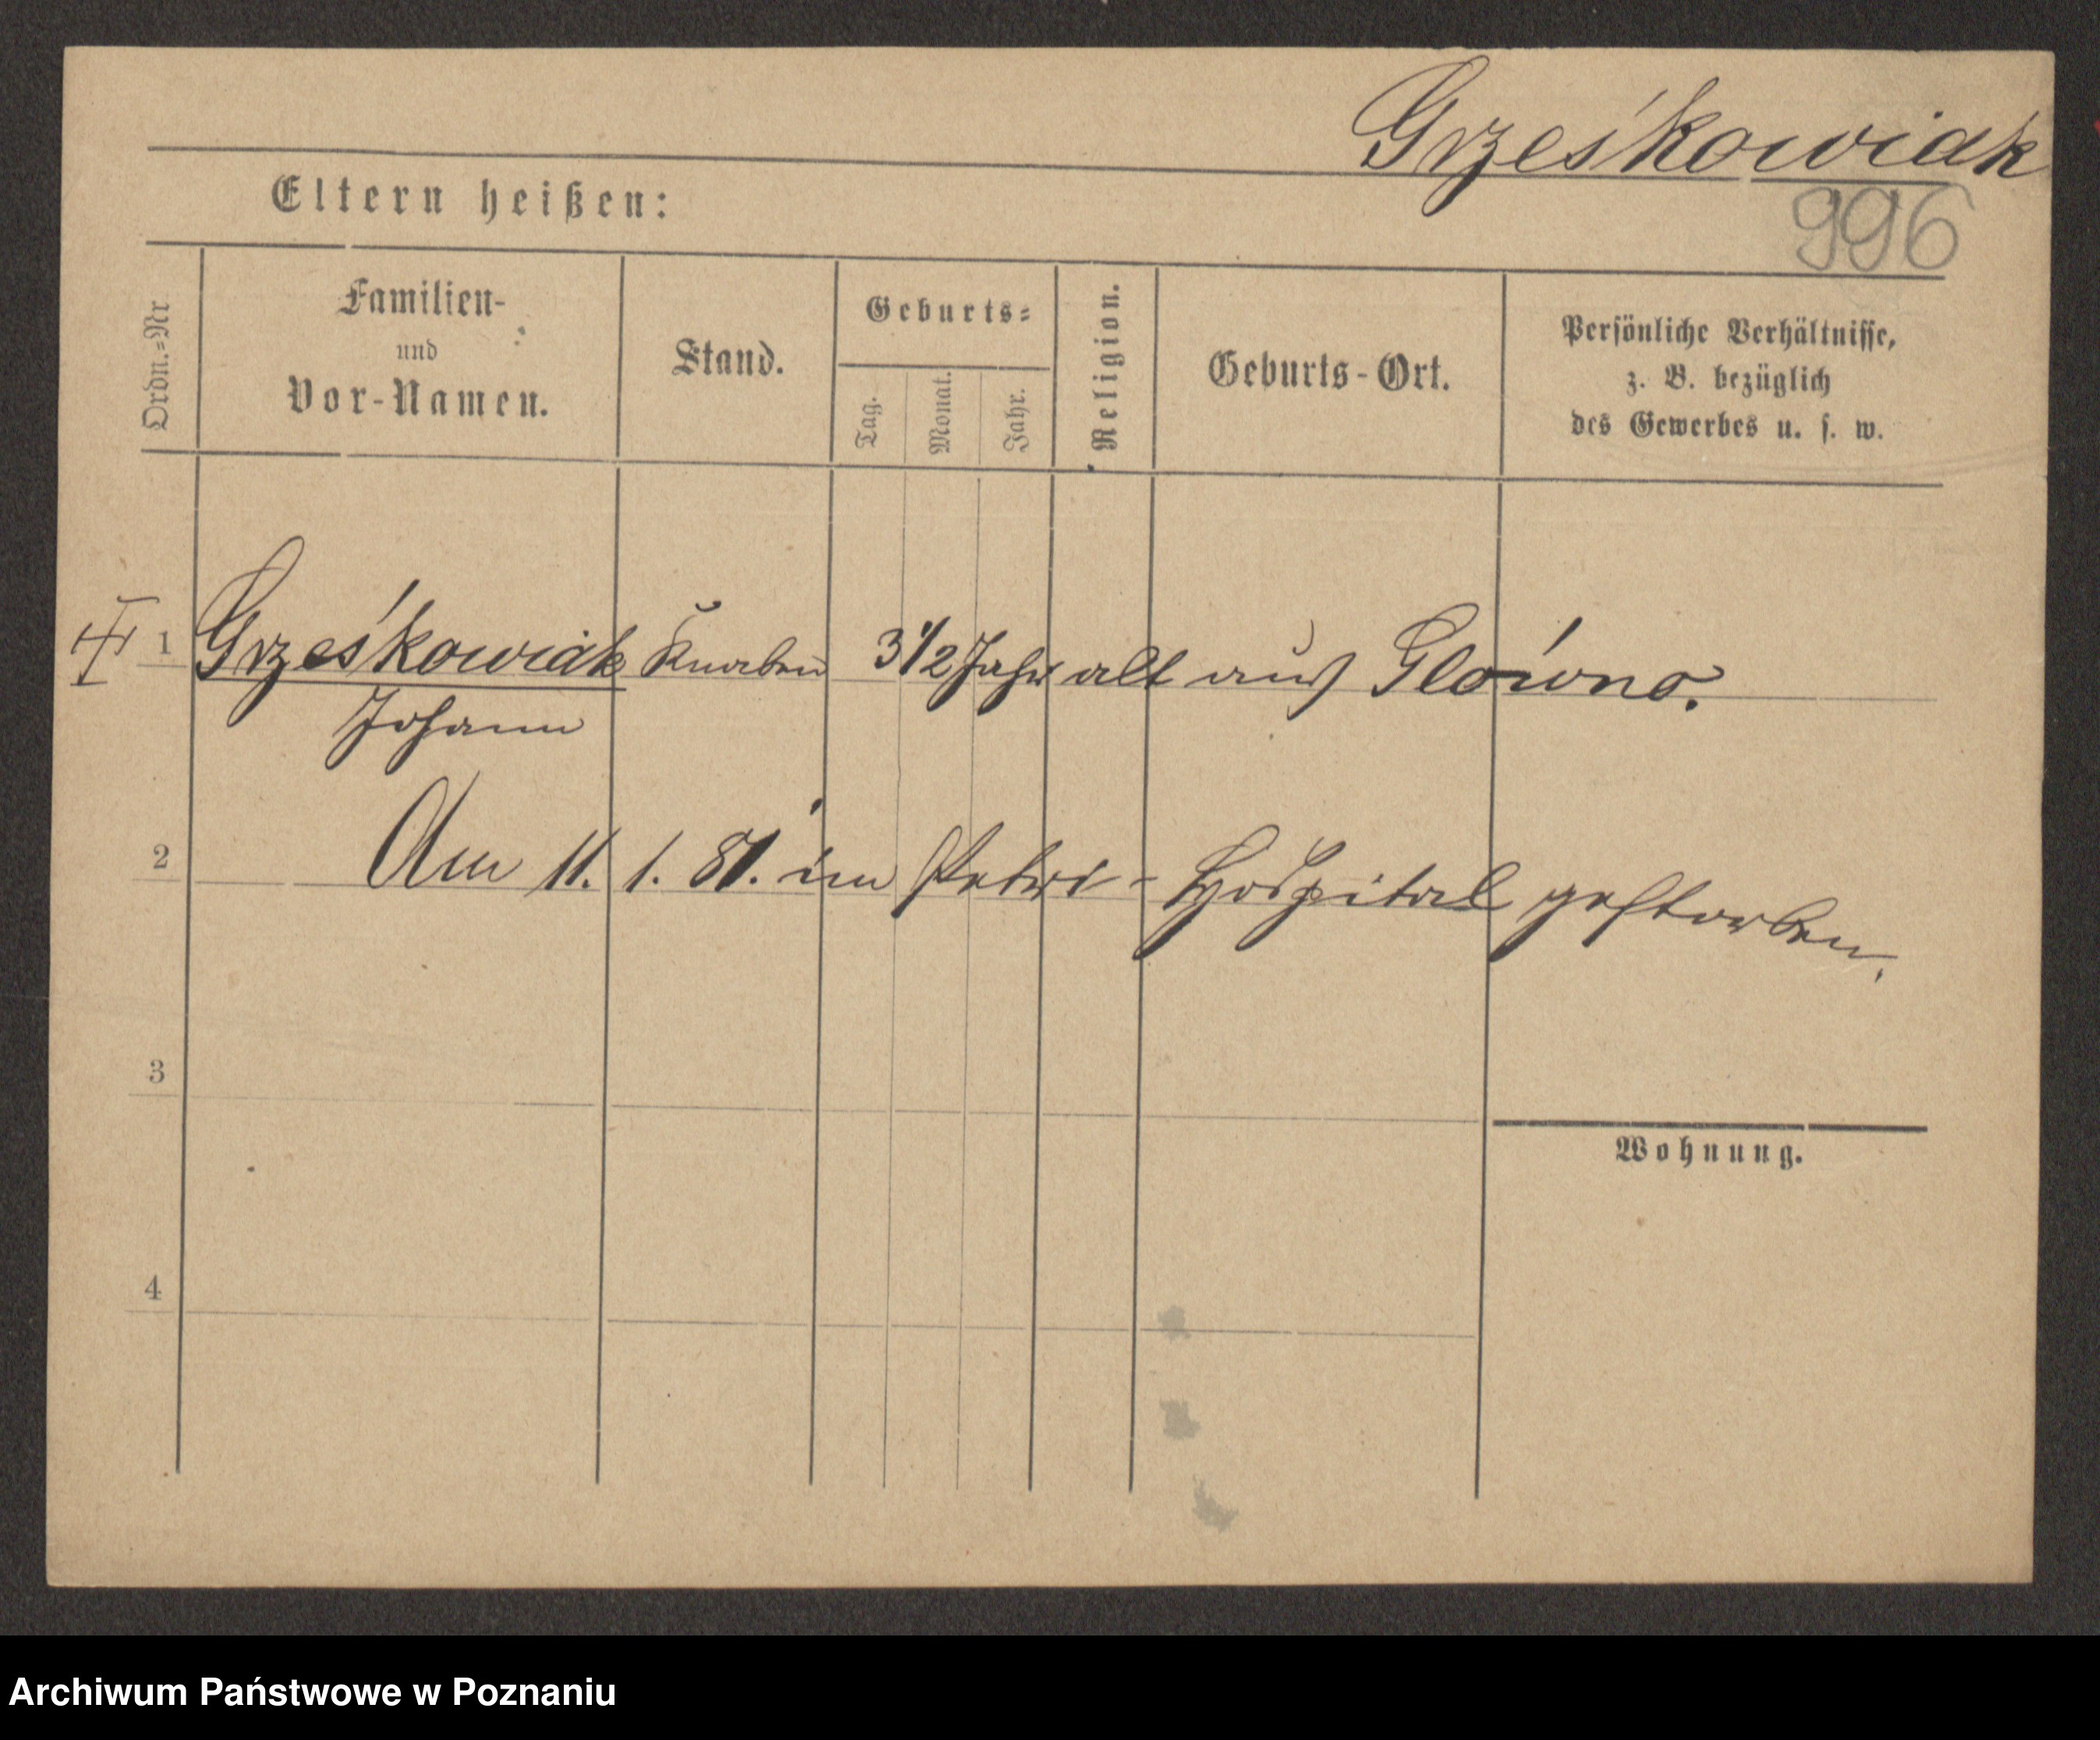 Grześkowiak
Eltern heißen:
996
Ordn.=Nr.
Familien-
und
Vor-Namen.
Stand.
Geburts=
Tag.
Monat.
Jahr.
Religion.
Geburts-Ort.
Persönliche Verhältnisse,
z. B. bezüglich
des Gewerbes u. s. w.
1 Grześkowiak Knaben 3 1/2 Jahr alt aus Glówno.
Johann
2 Am 11. 1. 81. im Petri-Hospital gestorben.
3
Wohnung.
4
Archiwum Państwowe w Poznaniu